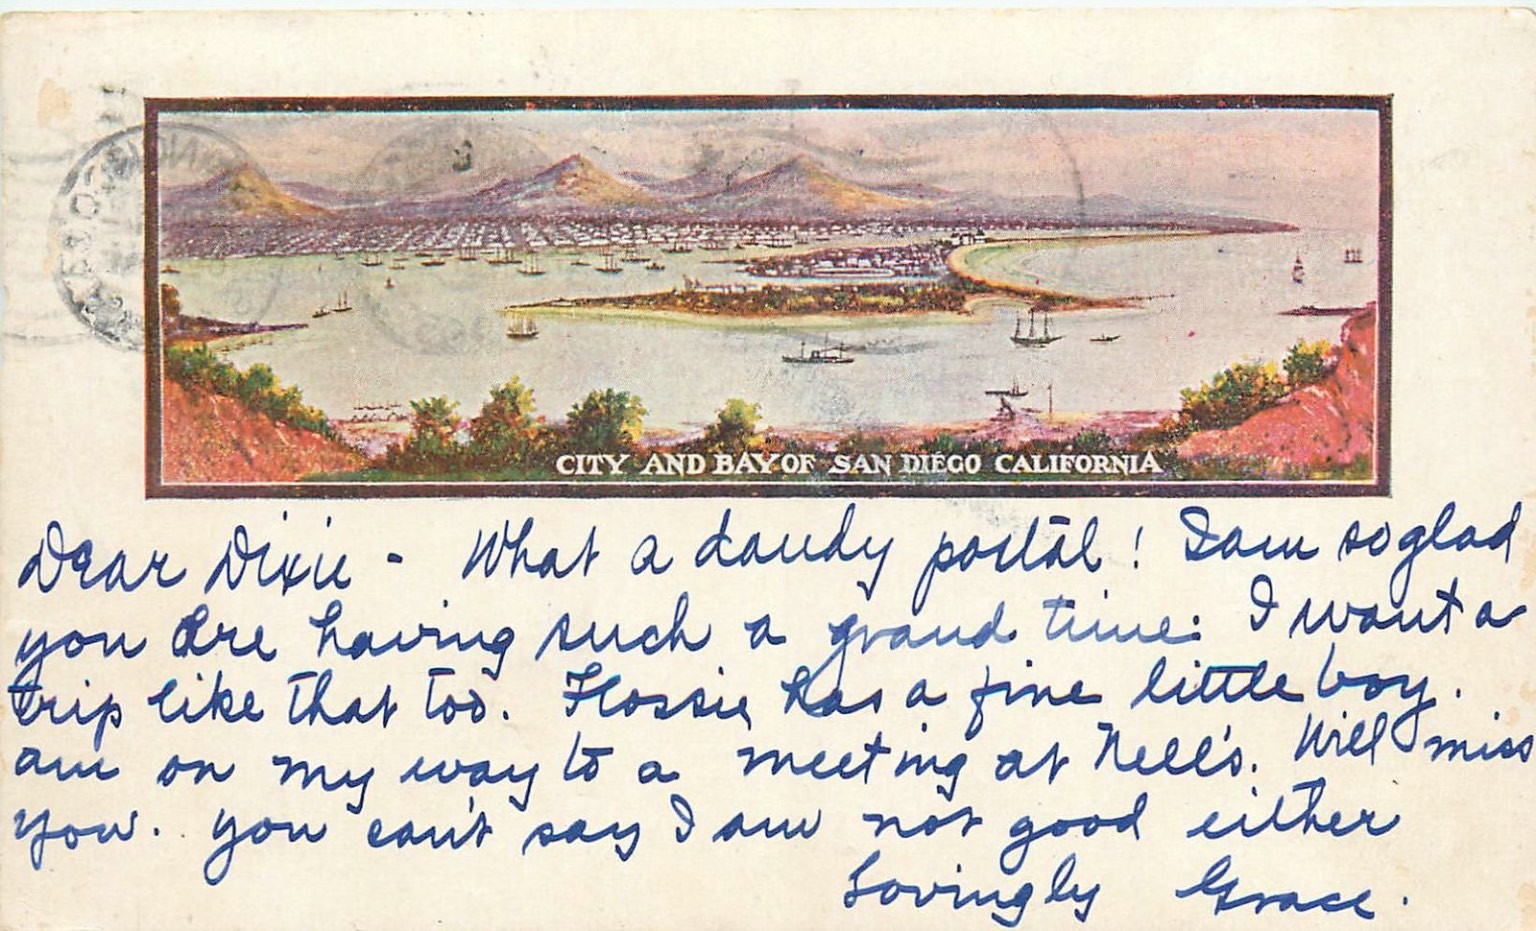 CITY AND BAY OF SAN DIEGO CALIFORNIA
Dear Dixie - What a dandy postal! I am so glad
you are having such a grand time. I want a
trip like that too. Flossie has a fine little boy.
am on my way to a meeting at Nell's. Will miss
you. you can't say I am not good either
Lovingly Grace.